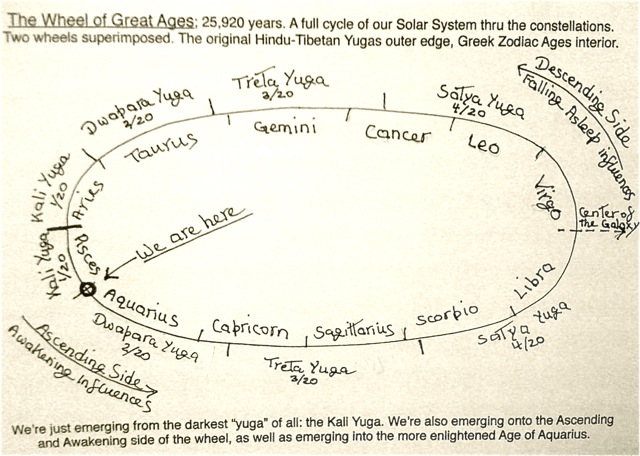 The Wheel of Great Ages; 25,920 years. A full cycle of our Solar System thru the constellations.
Two wheels superimposed. The original Hindu-Tibetan Yugas outer edge, Greek Zodiac Ages interior.
Descending Side
Falling Asleep influences
Dwapara Yuga
2/20
Treta Yuga
3/20
Satya Yuga
4/20
Taurus
Gemini
Cancer
Leo
Virgo
Kali Yuga
1/20
Aries
Center of
the Galaxy
We are here
Kali Yuga
1/20
Pisces
Aquarius
Capricorn
Sagittarius
Scorpio
Libra
Dwapara Yuga
2/20
Treta Yuga
3/20
Satya Yuga
4/20
Ascending Side
Awakening Influences
We're just emerging from the darkest "yuga" of all: the Kali Yuga. We're also emerging onto the Ascending
and Awakening side of the wheel, as well as emerging into the more enlightened Age of Aquarius.